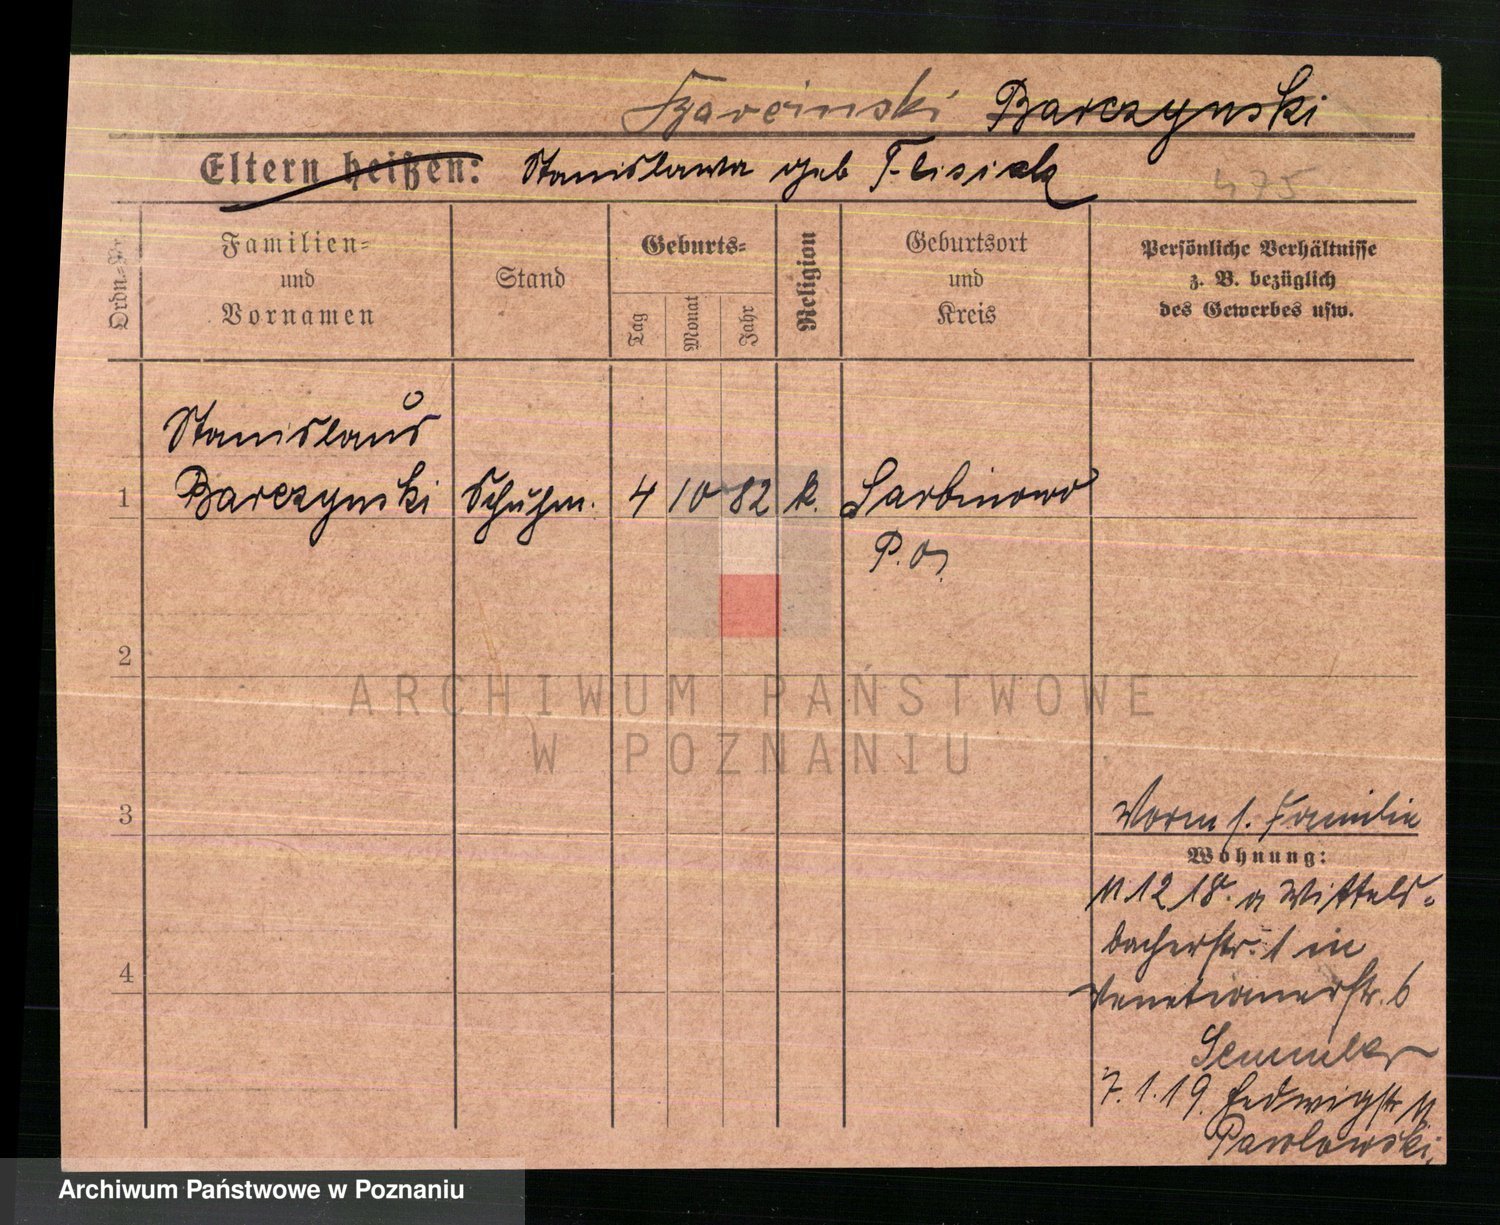 Szarcinski Barczynski
Eltern heißen: Stanislawa geb Flisiak
475
Ordn.-Nr.
Familien-
und
Vornamen
Stand
Geburts-
Tag
Monat
Jahr
Religion
Geburtsort
und
Kreis
Persönliche Verhältnisse
z. B. bezüglich
des Gewerbes usw.
Stanislaus
1 Barczynski Schuhm. 4 10 82 k. Sarbinowo
P. O.
2
ARCHIWUM PAŃSTWOWE
W POZNANIU
3
Vorm s. Familie
Wohnung:
11.12 18. a Wittels-
bacherstr. 1 in
Venetianerstr. 6
4
7.1.19. Hedwigstr 11
Pawlowski.
Archiwum Państwowe w Poznaniu